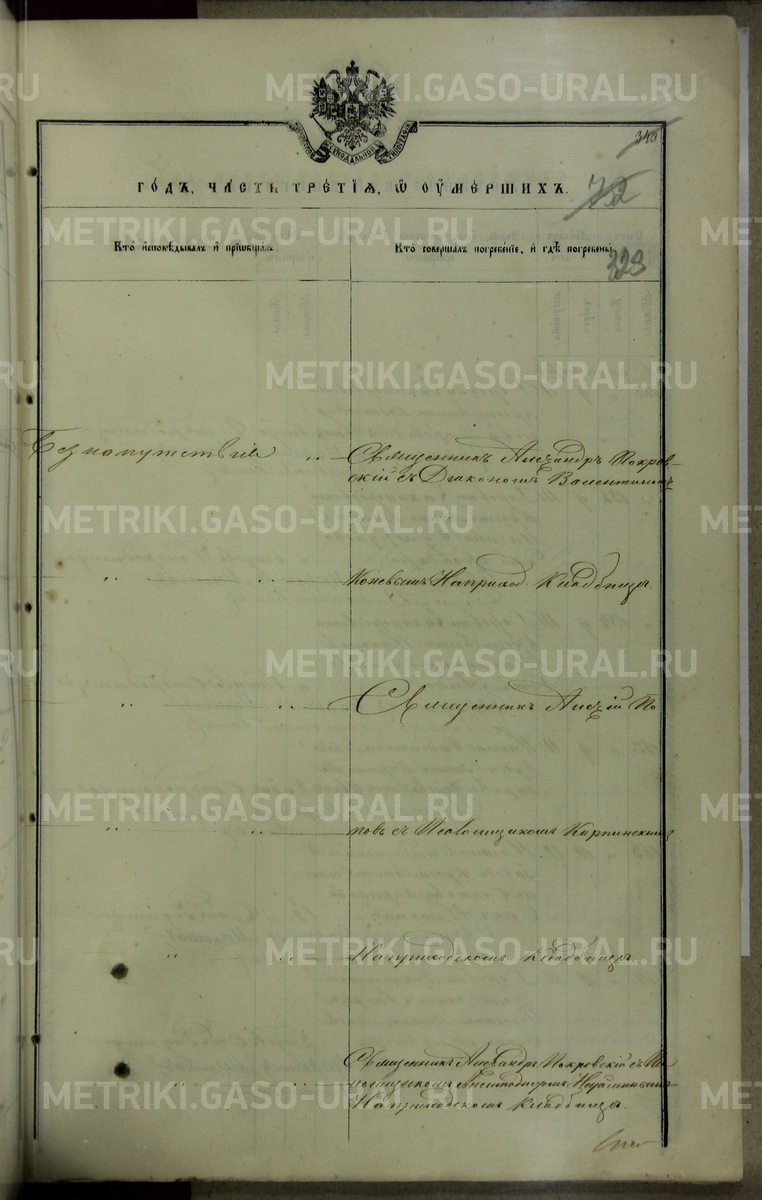 348
ГОДЪ, ЧАСТЬ ТРЕТІЯ, Ѡ ОУМЕРШИХЪ.
72
Кто исповѣдывалъ и пріобщалъ.
Кто совершалъ погребеніе, и гдѣ погребены.
323
Безнапутствія " " Священникъ Александръ Покров-
скій съ Діакономъ Валентиномъ
" " Коневымъ На приход. Кладбищѣ.
" " Священникъ Алексій По
" " повъ съ Псаломщикомъ Карпинскимъ
" " На приходскомъ кладбищѣ.
Священникъ Александръ Покровскій съ
" " На приходскомъ кладбищѣ.
METRIKI.GASO-URAL.RU